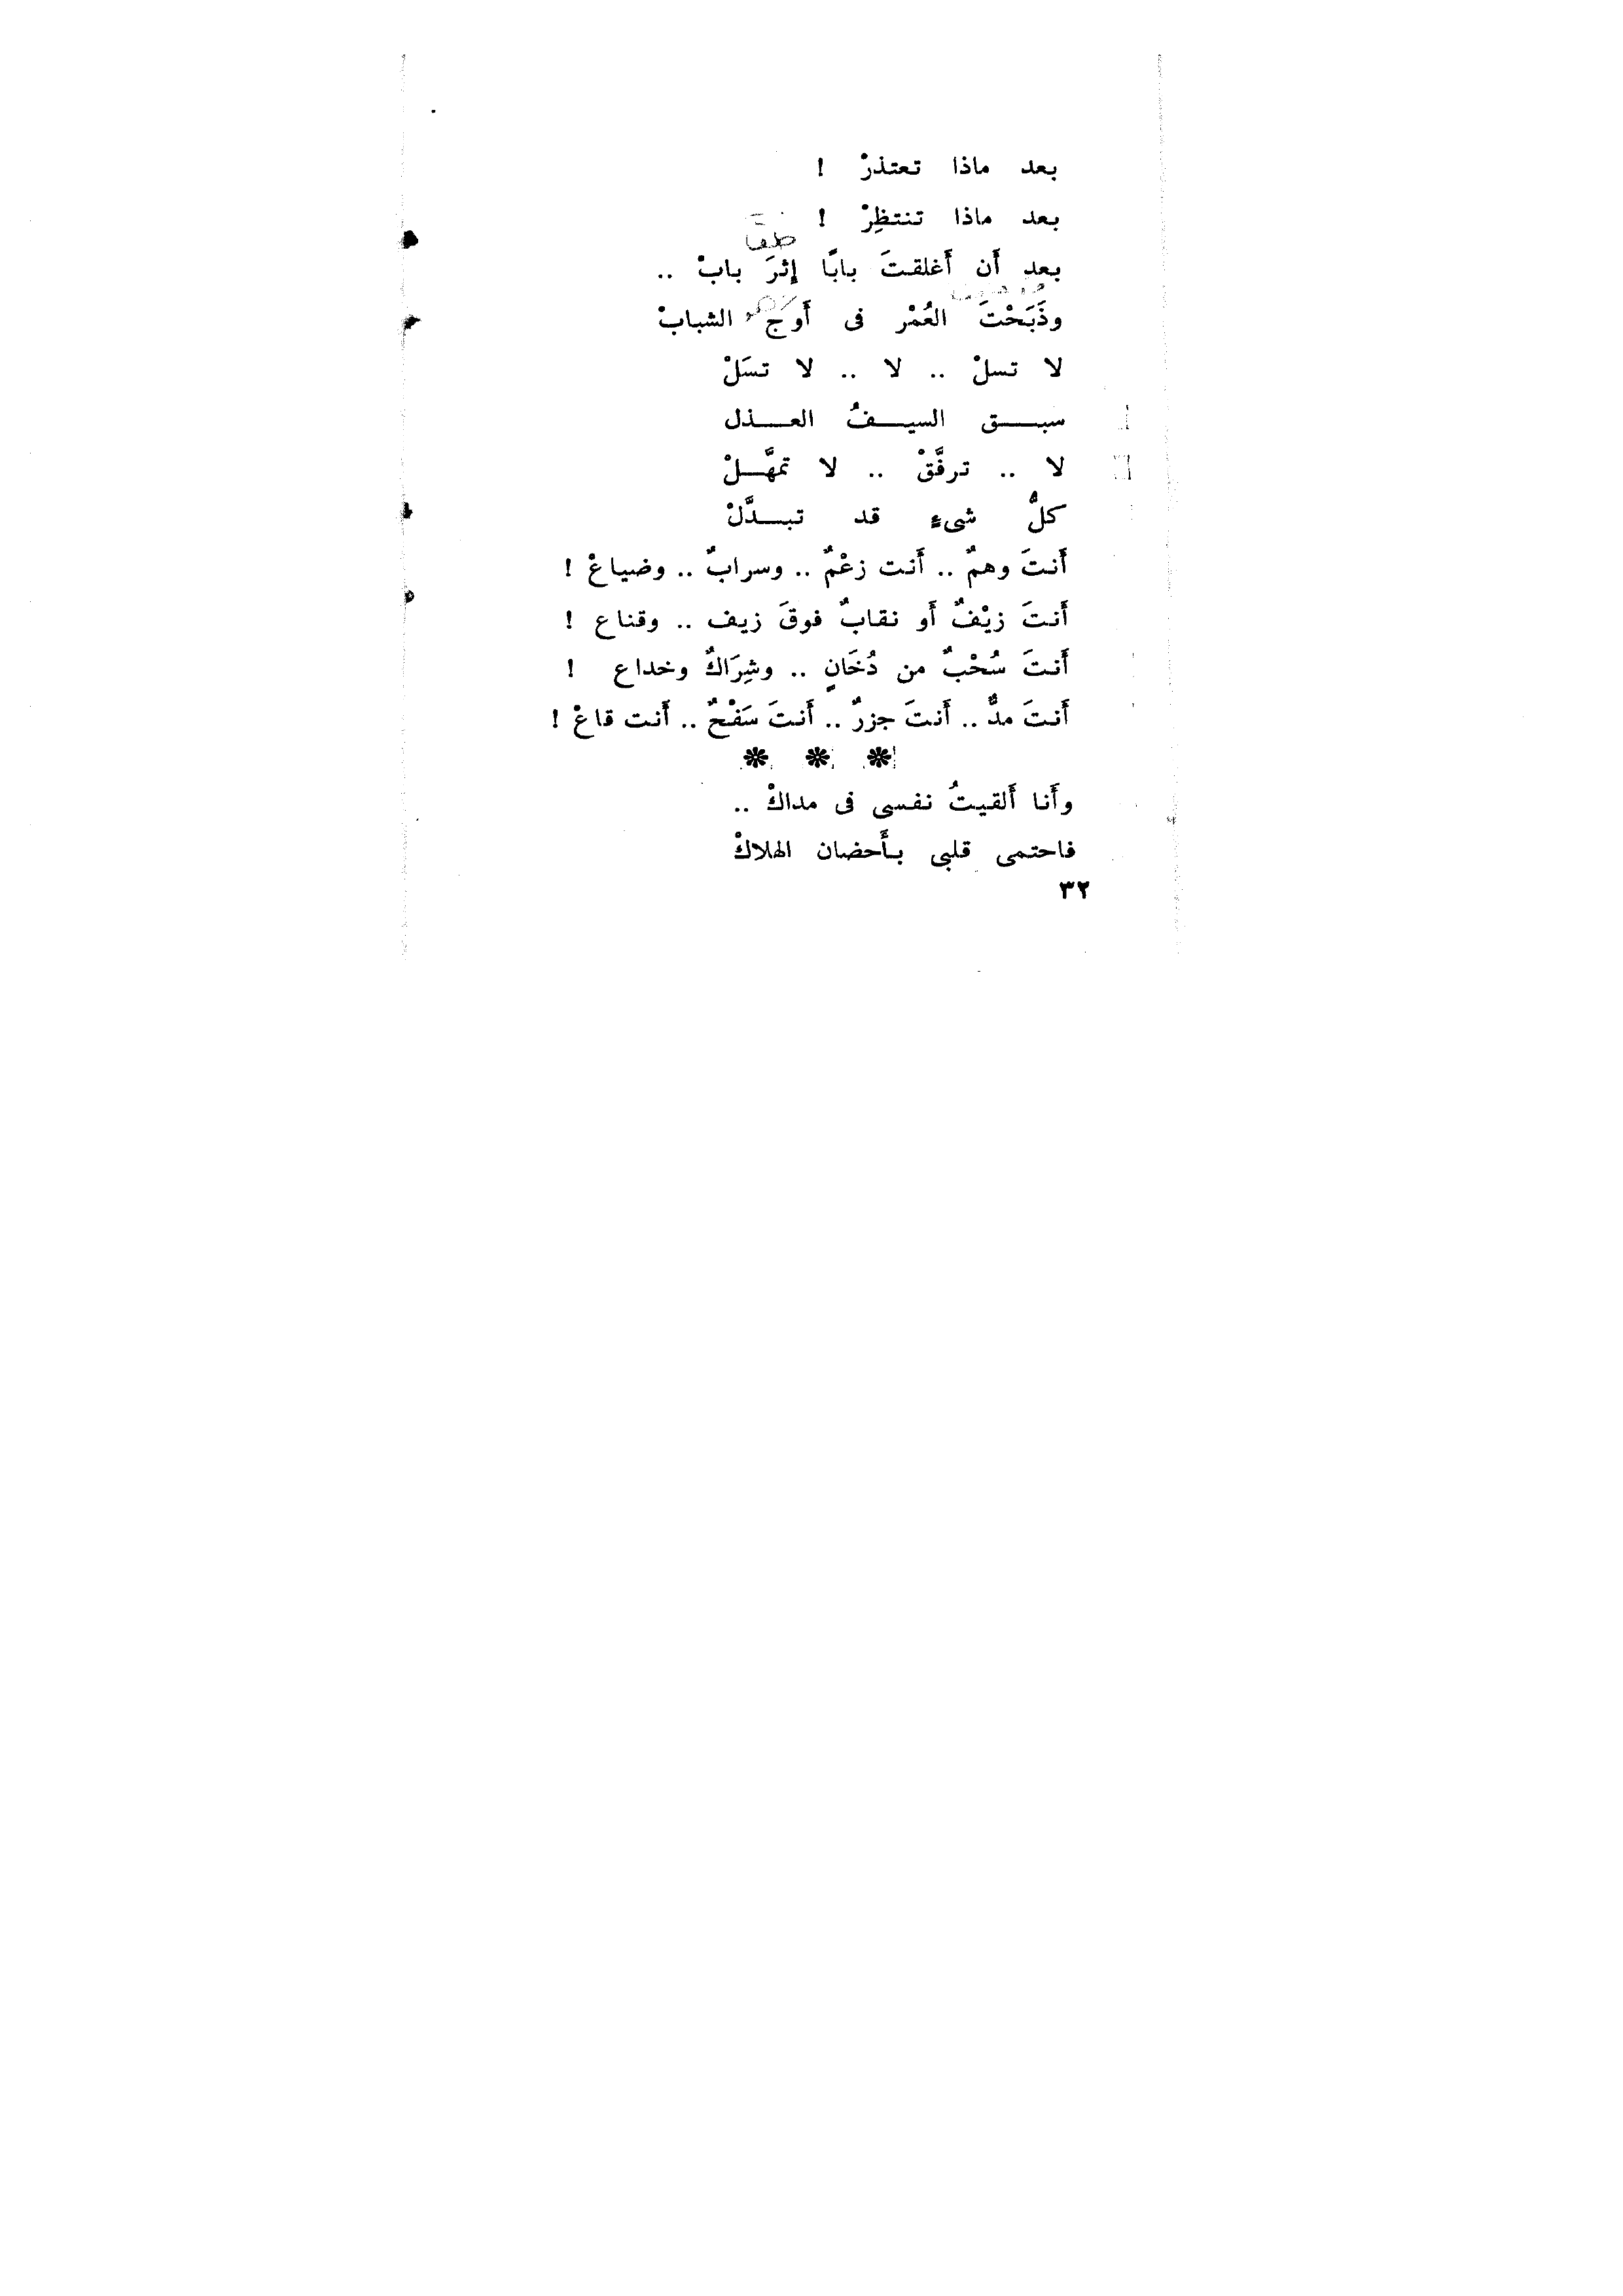 بعد ماذا تعتذرْ !
بعد ماذا تنتظِرْ !
بعد أَن أَغلقتَ بابًا إِثرَ بابْ ..
وذَبَحْتَ العُمْر فى أَوج الشبابْ
لا تسلْ .. لا .. لا تسَلْ
سبـــق السيــفُ العــذل
لا .. ترفَّقْ .. لا تمهَّــلْ
كلُّ شىءٍ قد تبــدَّلْ
أَنتَ وهمٌ .. أَنت زعْمٌ .. وسرابٌ .. وضياعْ !
أَنتَ زيْفٌ أَو نقابٌ فوقَ زيف .. وقناع !
أَنتَ سُحْبٌ من دُخَانٍ .. وشِرَاكٌ وخداع !
أَنتَ مدٌّ .. أَنتَ جزرٌ .. أَنتَ سَفْحٌ .. أَنت قاعْ !
❋ ❋ ❋
وأَنا أَلقيتُ نفسى فى مداكْ ..
فاحتمى قلبى بأَحضان الهلاكْ
٣٢